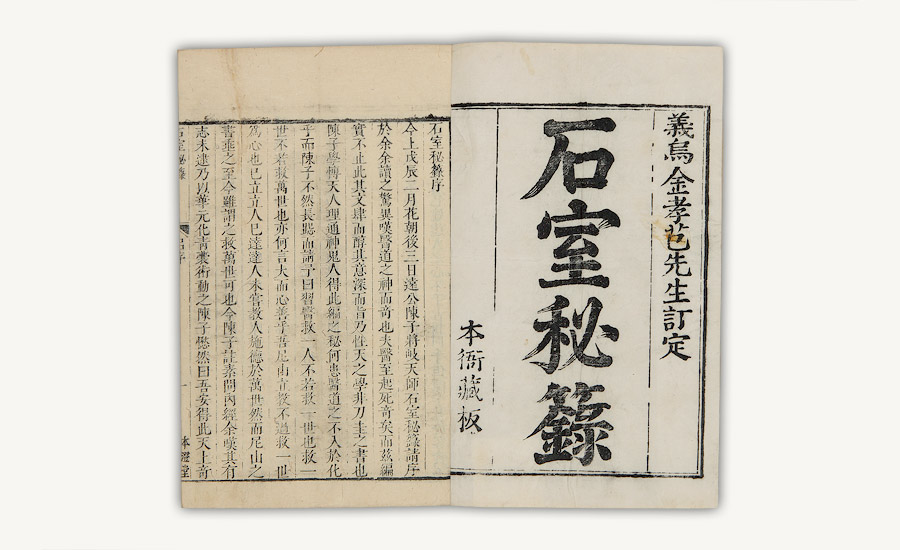 義烏金孝芑先生訂定
石室秘籙
本衙藏板
石室秘籙序
今上戊辰二月花朝後三日遠公陳子將岐天師石室秘籙請序
於余余讀之驚異嘆醫道之神而奇也夫醫至起死奇矣而茲編
實不止此其文肆而醇其意深而旨乃性天之學非刀圭之書也
陳子學博天人理通神鬼人得此編之秘何患醫道之不入於化
乎而陳子不然長跽而請予曰習醫救一人不若救一世也救一
世不若救萬世也亦何言大而心善乎吾尼山立教不過救一世
爲心也已立立人已達達人未嘗教人施德於萬世然而尼山之
書垂之至今雖謂之救萬世可也今陳子註素問內經余嘆其有
志未逮乃以華元化青囊術動之陳子愀然曰吾安得此天上奇
石室秘籙 呂序 一 本澄堂